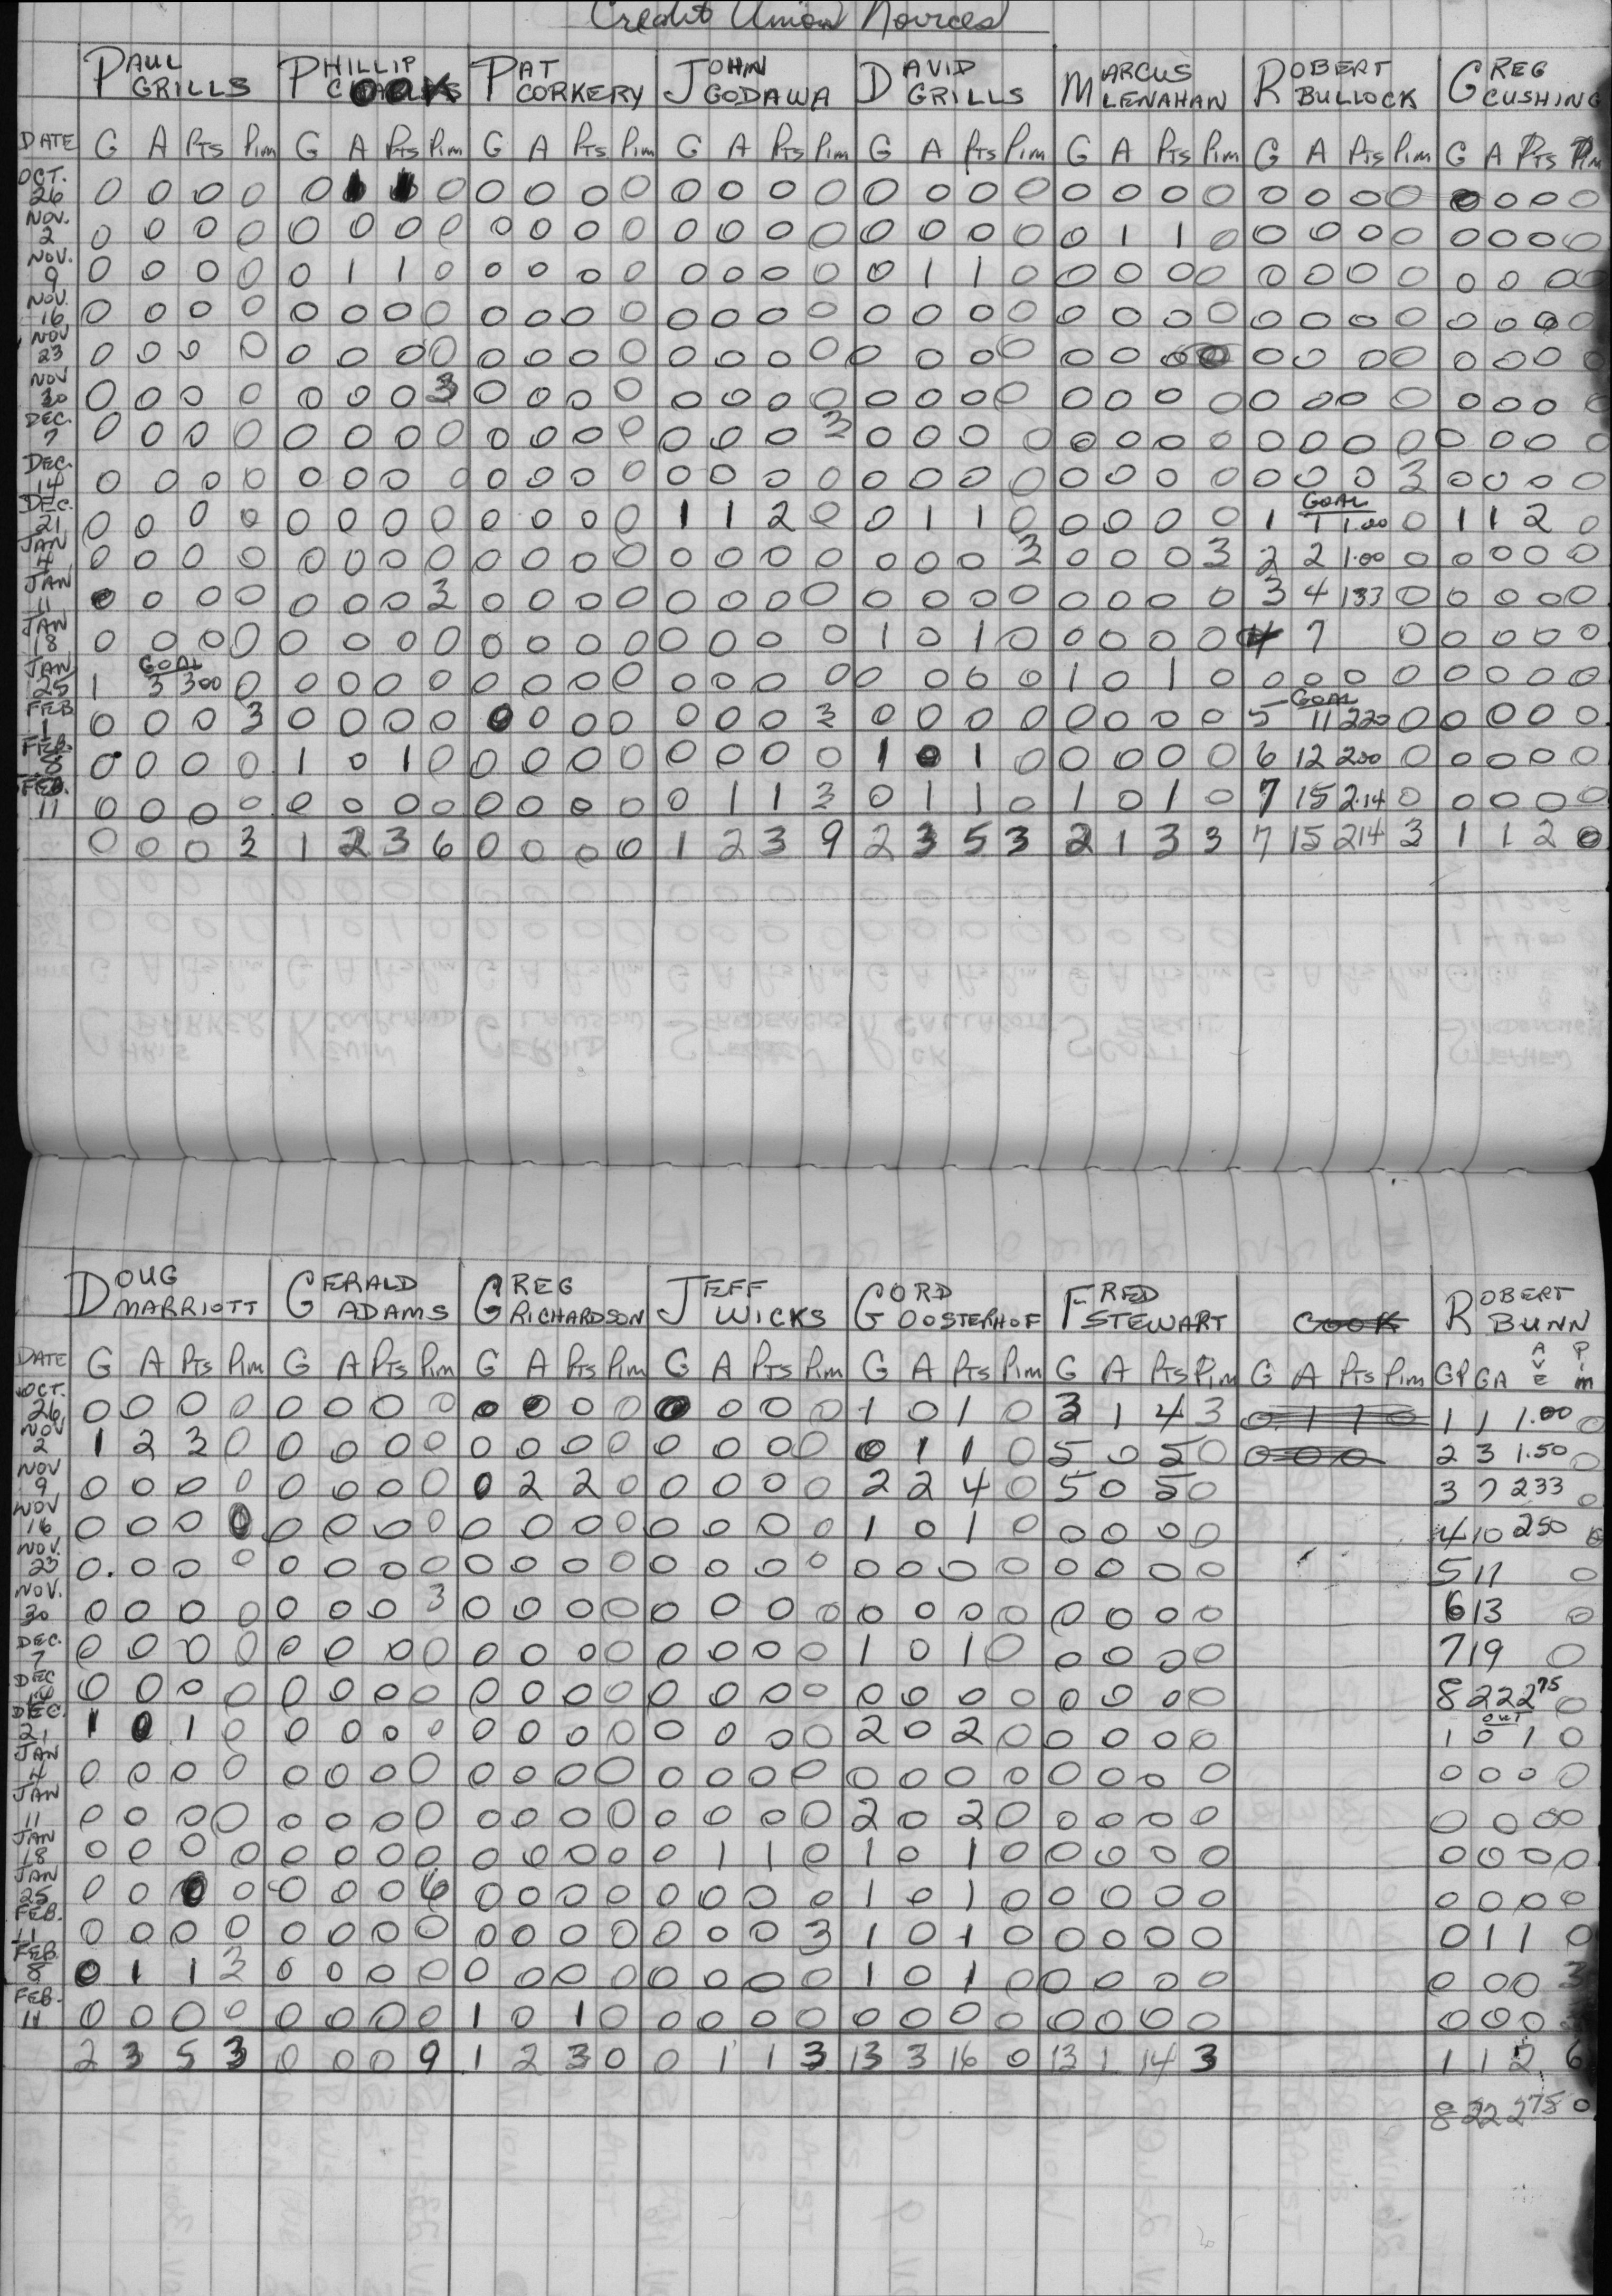 Credit Union Novices
PAUL GRILLS PHILLIP COOK PAT CORKERY JOHN GODAWA DAVID GRILLS MARCUS LENAHAN ROBERT BULLOCK GREG CUSHING
DATE G A PTS Pim G A PTS Pim G A PTS Pim G A PTS Pim G A PTS Pim G A PTS Pim G A PTS Pim G A PTS Pim
OCT. 26 0 0 0 0 0 1 1 0 0 0 0 0 0 0 0 0 0 0 0 0 0 0 0 0 0 0 0 0 0 0 0 0
NOV. 2 0 0 0 0 0 0 0 0 0 0 0 0 0 0 0 0 0 0 0 0 0 1 1 0 0 0 0 0 0 0 0 0
NOV. 9 0 0 0 0 0 1 1 0 0 0 0 0 0 0 0 0 0 1 1 0 0 0 0 0 0 0 0 0 0 0 0 0
NOV. 16 0 0 0 0 0 0 0 0 0 0 0 0 0 0 0 0 0 0 0 0 0 0 0 0 0 0 0 0 0 0 0 0
NOV 23 0 0 0 0 0 0 0 0 0 0 0 0 0 0 0 0 0 0 0 0 0 0 0 0 0 0 0 0 0 0 0 0
NOV 30 0 0 0 0 0 0 0 3 0 0 0 0 0 0 0 0 0 0 0 0 0 0 0 0 0 0 0 0 0 0 0 0
DEC. 7 0 0 0 0 0 0 0 0 0 0 0 0 0 0 0 3 0 0 0 0 0 0 0 0 0 0 0 0 0 0 0 0
DEC. 14 0 0 0 0 0 0 0 0 0 0 0 0 0 0 0 0 0 0 0 0 0 0 0 0 0 0 0 3 0 0 0 0
GOAL
DEC. 21 0 0 0 0 0 0 0 0 0 0 0 0 1 1 2 0 0 1 1 0 0 0 0 0 1 1 1.00 0 1 1 2 0
JAN 4 0 0 0 0 0 0 0 0 0 0 0 0 0 0 0 0 0 0 0 3 0 0 0 3 2 2 1.00 0 0 0 0 0
JAN 11 0 0 0 0 0 0 0 3 0 0 0 0 0 0 0 0 0 0 0 0 0 0 0 0 3 4 133 0 0 0 0 0
JAN 18 0 0 0 0 0 0 0 0 0 0 0 0 0 0 0 0 1 0 1 0 0 0 0 0 4 7 0 0 0 0 0
GOAL
JAN 25 1 3 300 0 0 0 0 0 0 0 0 0 0 0 0 0 0 0 0 0 1 0 1 0 0 0 0 0 0 0 0 0
GOAL
FEB 1 0 0 0 3 0 0 0 0 0 0 0 0 0 0 0 3 0 0 0 0 0 0 0 0 5 11 220 0 0 0 0 0
FEB. 8 0 0 0 0 1 0 1 0 0 0 0 0 0 0 0 0 1 0 1 0 0 0 0 0 6 12 200 0 0 0 0 0
FEB. 11 0 0 0 0 0 0 0 0 0 0 0 0 0 1 1 3 0 1 1 0 1 0 1 0 7 15 2.14 0 0 0 0 0
0 0 0 3 1 2 3 6 0 0 0 0 1 2 3 9 2 3 5 3 2 1 3 3 7 15 214 3 1 1 2 0
DOUG MARRIOTT GERALD ADAMS GREG RICHARDSON JEFF WICKS GORD OOSTERHOF FRED STEWART COOK ROBERT BUNN
DATE G A PTS Pim G A PTS Pim G A PTS Pim G A PTS Pim G A PTS Pim G A PTS Pim G A PTS Pim GP GA AVE Pim
OCT. 26 0 0 0 0 0 0 0 0 0 0 0 0 0 0 0 0 1 0 1 0 3 1 4 3 0 1 1 0 1 1 1.00 0
NOV 2 1 2 3 0 0 0 0 0 0 0 0 0 0 0 0 0 0 1 1 0 5 0 5 0 0 0 0 2 3 1.50 0
NOV 9 0 0 0 0 0 0 0 0 0 2 2 0 0 0 0 0 2 2 4 0 5 0 5 0 3 7 233 0
NOV 16 0 0 0 0 0 0 0 0 0 0 0 0 0 0 0 0 1 0 1 0 0 0 0 0 4 10 250 0
NOV. 23 0 0 0 0 0 0 0 0 0 0 0 0 0 0 0 0 0 0 0 0 0 0 0 0 5 11 0
NOV. 30 0 0 0 0 0 0 0 3 0 0 0 0 0 0 0 0 0 0 0 0 0 0 0 0 6 13 0
DEC. 7 0 0 0 0 0 0 0 0 0 0 0 0 0 0 0 0 1 0 1 0 0 0 0 0 7 19 0
DEC 14 0 0 0 0 0 0 0 0 0 0 0 0 0 0 0 0 0 0 0 0 0 0 0 0 8 22 2 75 0
OUT
DEC. 21 1 0 1 0 0 0 0 0 0 0 0 0 0 0 0 0 2 0 2 0 0 0 0 0 1 0 1 0
JAN 4 0 0 0 0 0 0 0 0 0 0 0 0 0 0 0 0 0 0 0 0 0 0 0 0 0 0 0 0
JAN 11 0 0 0 0 0 0 0 0 0 0 0 0 0 0 0 0 2 0 2 0 0 0 0 0 0 0 0 0
JAN 18 0 0 0 0 0 0 0 0 0 0 0 0 0 1 1 0 1 0 1 0 0 0 0 0 0 0 0 0
JAN 25 0 0 0 0 0 0 0 6 0 0 0 0 0 0 0 0 1 0 1 0 0 0 0 0 0 0 0 0
FEB. 1 0 0 0 0 0 0 0 0 0 0 0 0 0 0 0 3 1 0 1 0 0 0 0 0 0 1 1 0
FEB. 8 0 1 1 3 0 0 0 0 0 0 0 0 0 0 0 0 1 0 1 0 0 0 0 0 0 0 0 3
FEB. 11 0 0 0 0 0 0 0 0 1 0 1 0 0 0 0 0 0 0 0 0 0 0 0 0 0 0 0
2 3 5 3 0 0 0 9 1 2 3 0 0 1 1 3 13 3 16 0 13 1 14 3 1 1 2 6
8 22 2 75 0